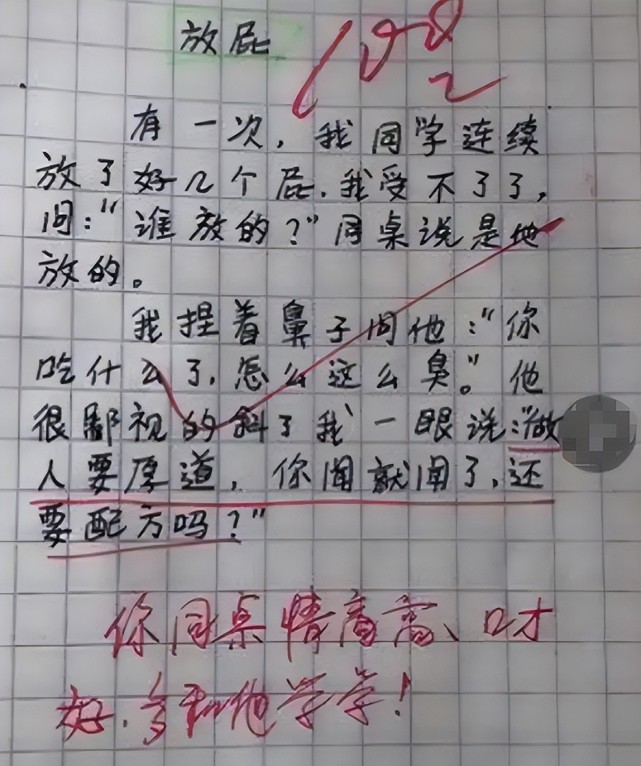 放屁
100
有一次，我同学连续
放了好几个屁.我受不了了，
问："谁放的？"同桌说是他
放的。
我捏着鼻子问他："你
吃什么了，怎么这么臭。"他
很鄙视的斜了我一眼说："做
人要厚道，你闻就闻了，还
要配方吗？"
你同桌情商高、口才
好.多和他学学！